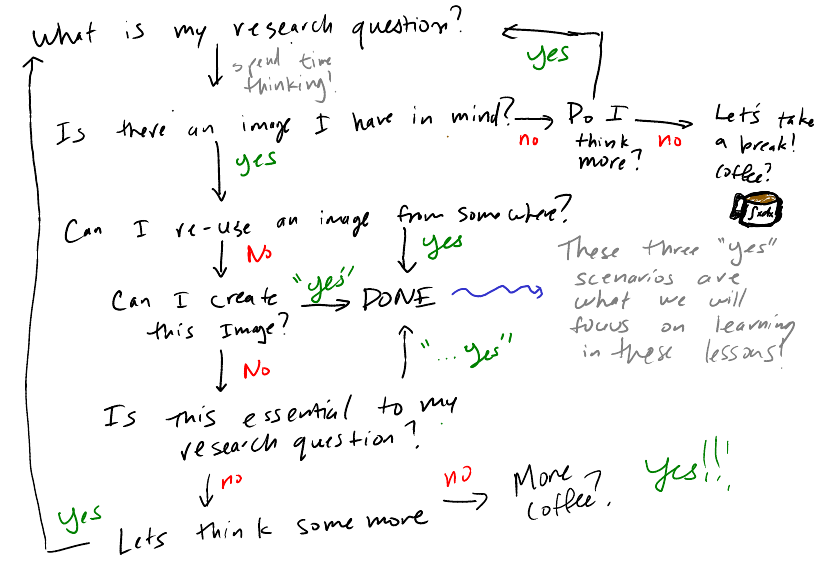 What is my research question?
yes
spend time
thinking!
Is there an image I have in mind?
no
Do I
think
more?
no
Let's take
a break!
coffee?
yes
Can I re-use an image from somewhere?
No
yes
Can I create
this Image?
"yes"
DONE
These three "yes"
scenarios are
what we will
focus on learning
in these lessons!
No
"...yes"
Is this essential to my
research question?
no
yes
Lets think some more
no
More
coffee?
yes!!!